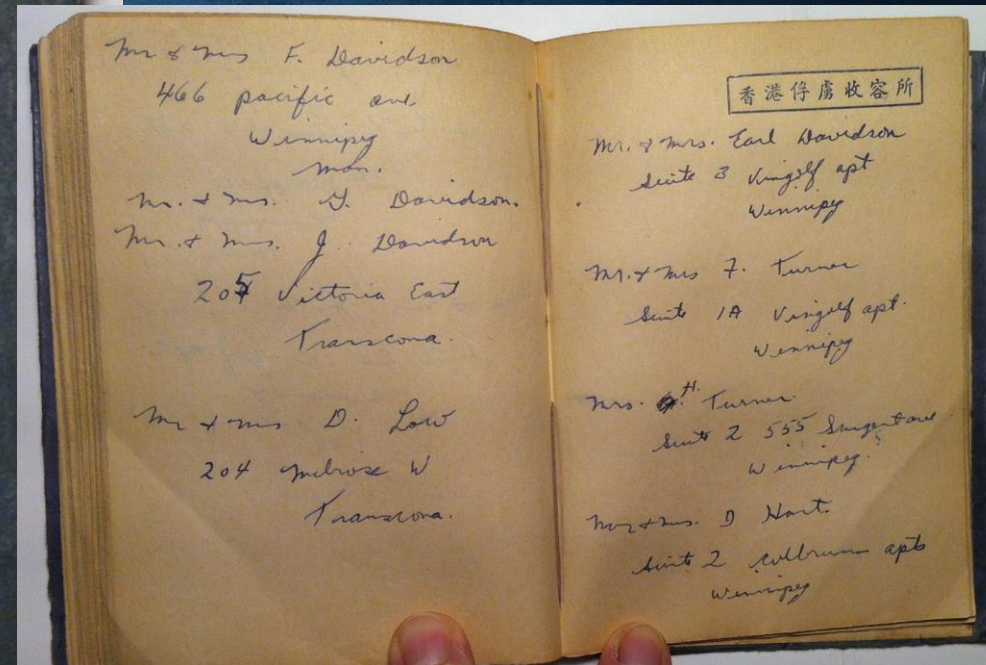 Mr & Mrs F. Davidson
466 pacific ave
Winnipeg
Man.
Mr. & Mrs. G. Davidson.
Mr. & Mrs. J. Davidson
205 Victoria East
Transcona.
Mr & Mrs D. Low
204 Melrose W
Transcona.
香港俘虜收容所
Mr. & Mrs. Earl Davidson
Suite 3 Vingolf apt
Winnipeg
Mr. & Mrs F. Turner
Suite 1A Vingolf apt.
Winnipeg
Mrs. H. Turner.
Suite 2 555 Sargent ave
Winnipeg.
Mr & Mrs. D Hart.
Suite 2 apts
Winnipeg